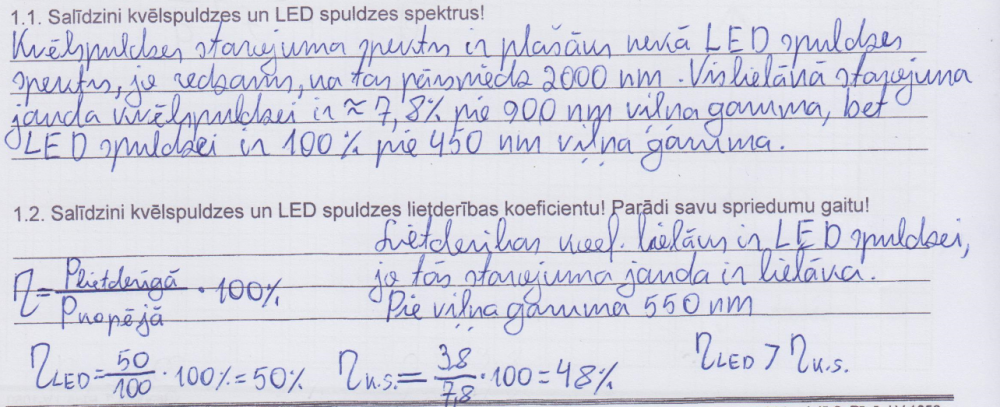 1.1. Salīdzini kvēlspuldzes un LED spuldzes spektrus!
Kvēlspuldzes starojuma spektrs ir plašāks nekā LED spuldzes
spektrs, jo redzams, ka tas pārsniedz 2000 nm. Vislielākā starojuma
jauda kvēlspuldzei ir ≈ 7,8% pie 900 nm viļņa garuma, bet
LED spuldzei ir 100% pie 450 nm viļņa garuma.
1.2. Salīdzini kvēlspuldzes un LED spuldzes lietderības koeficientu! Parādi savu spriedumu gaitu!
Lietderības koef. lielāks ir LED spuldzei,
jo tās starojuma jauda ir lielāka.
Pie viļņa garuma 550 nm
η = Plietderīgā / Pkopējā · 100%
ηLED = 50/100 · 100% = 50% ηk.s. = 3,8/7,8 · 100 = 48% ηLED > ηk.s.